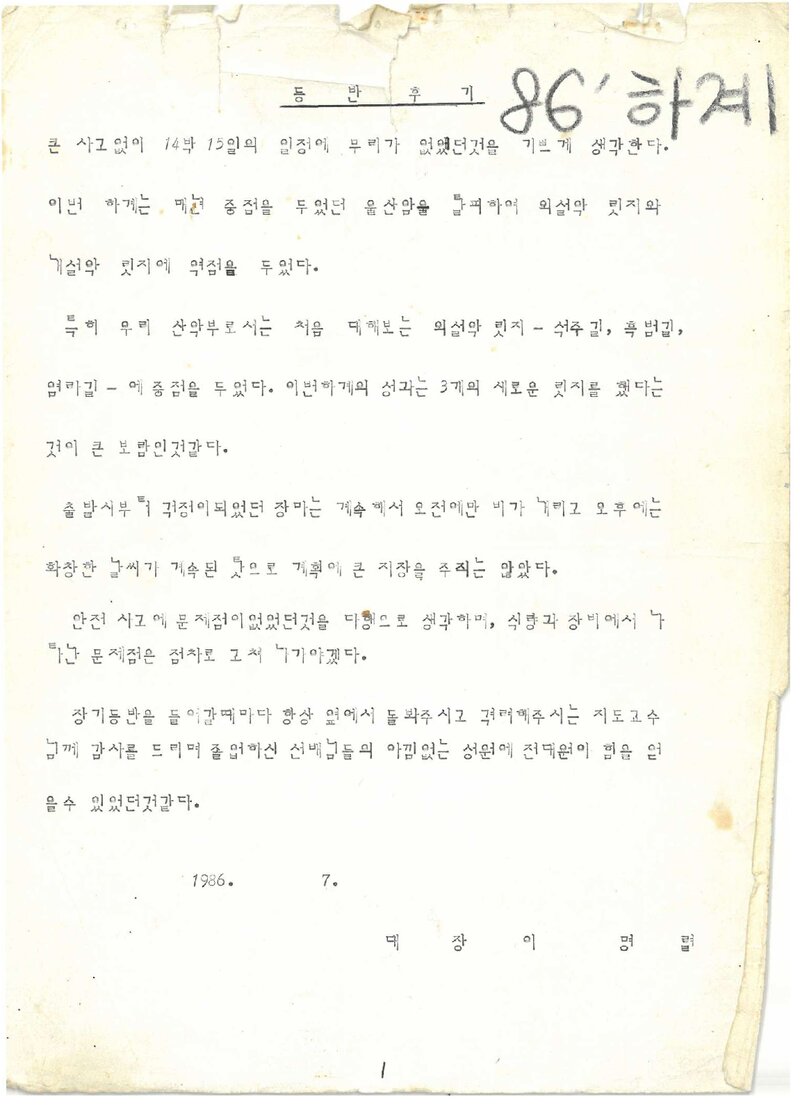 등 반 후 기
86' 하계
큰 사고없이 14박 15일의 일정에 무리가 없었던것을 기쁘게 생각한다.
이번 하계는 매년 중점을 두었던 울산암을 탈피하여 외설악 릿지와
내설악 릿지에 역점을 두었다.
특히 우리 산악부로서는 처음 대해보는 외설악 릿지 - 석주길, 흑범길,
염라길 - 에 중점을 두었다. 이번하계의 성과는 3개의 새로운 릿지를 했다는
것이 큰 보람인것같다.
출발시부터 걱정이되었던 장마는 계속해서 오전에만 비가 내리고 오후에는
화창한 날씨가 계속된 탓으로 계획에 큰 지장을 주지는 않았다.
안전 사고에 문제점이없었던것을 다행으로 생각하며, 식량과 장비에서 나
타난 문제점은 점차로 고쳐 나가야겠다.
장기등반을 들어갈때마다 항상 옆에서 돌봐주시고 격려해주시는 지도교수
님께 감사를 드리며 졸업하신 선배님들의 아낌없는 성원에 전대원이 힘을 얻
을수 있었던것같다.
1986. 7.
대 장 이 명
1